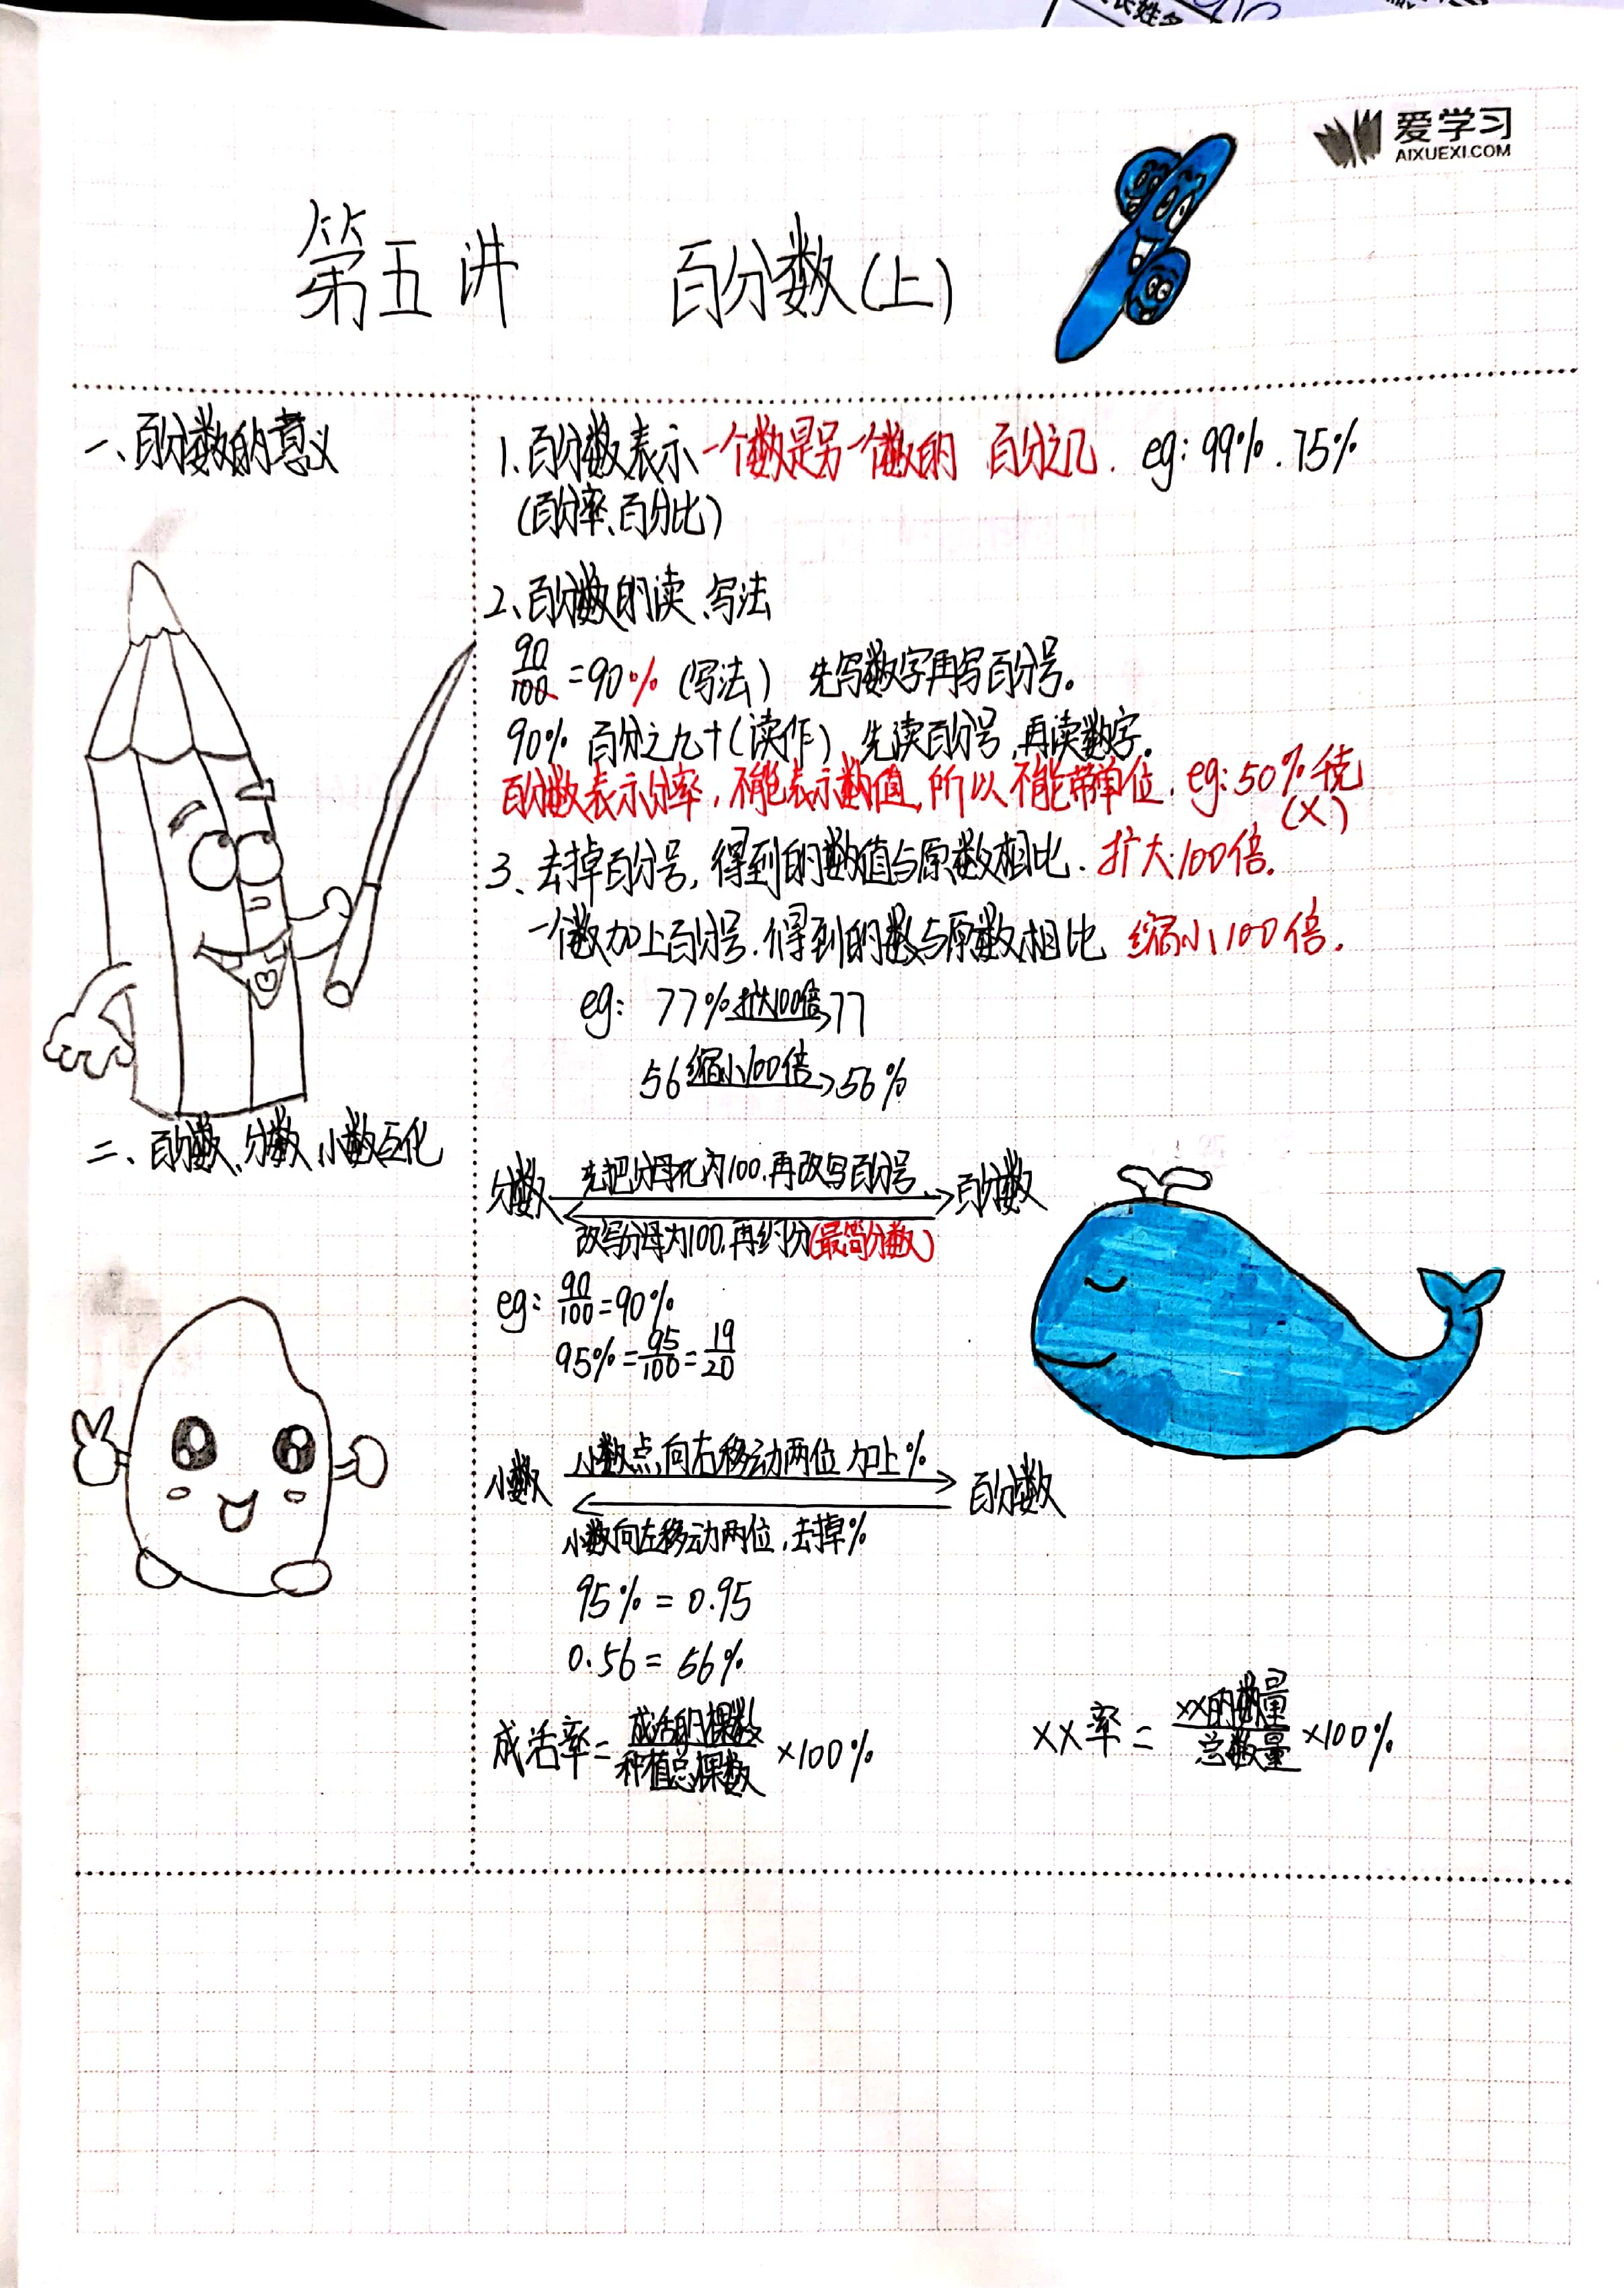 长姓名
爱学习
AIXUEXI.COM
第五讲 百分数(上)
一、百分数的意义
1.百分数表示一个数是另一个数的 百分之几. eg: 99%、75%
(百分率、百分比)
2、百分数的读、写法
90/100 = 90% (写法) 先写数字再写百分号。
90% 百分之九十(读作) 先读百分号,再读数字。
百分数表示分率,不能表示数值,所以不能带单位. eg: 50%千克
(×)
3、去掉百分号,得到的数值与原数相比.扩大100倍.
一个数加上百分号.得到的数与原数相比 缩小100倍.
eg: 77% 扩大100倍→ 77
56 缩小100倍→ 56%
二、百分数、分数、小数互化
先把分母化为100.再改写百分号
分数 百分数
改写分母为100.再约分(最简分数)
eg: 90/100 = 90%
95% = 95/100 = 19/20
小数点向右移动两位 加上%
小数 百分数
小数向左移动两位,去掉%
95% = 0.95
0.56 = 56%
成活率 = 成活的棵数/种植总棵数 ×100% ××率 = ××的数量/总数量 ×100%